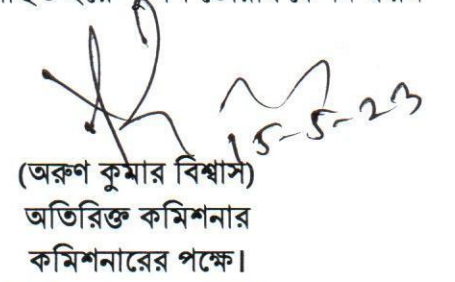 15-5-23
(অরুণ কুমার বিশ্বাস)
অতিরিক্ত কমিশনার
কমিশনারের পক্ষে।